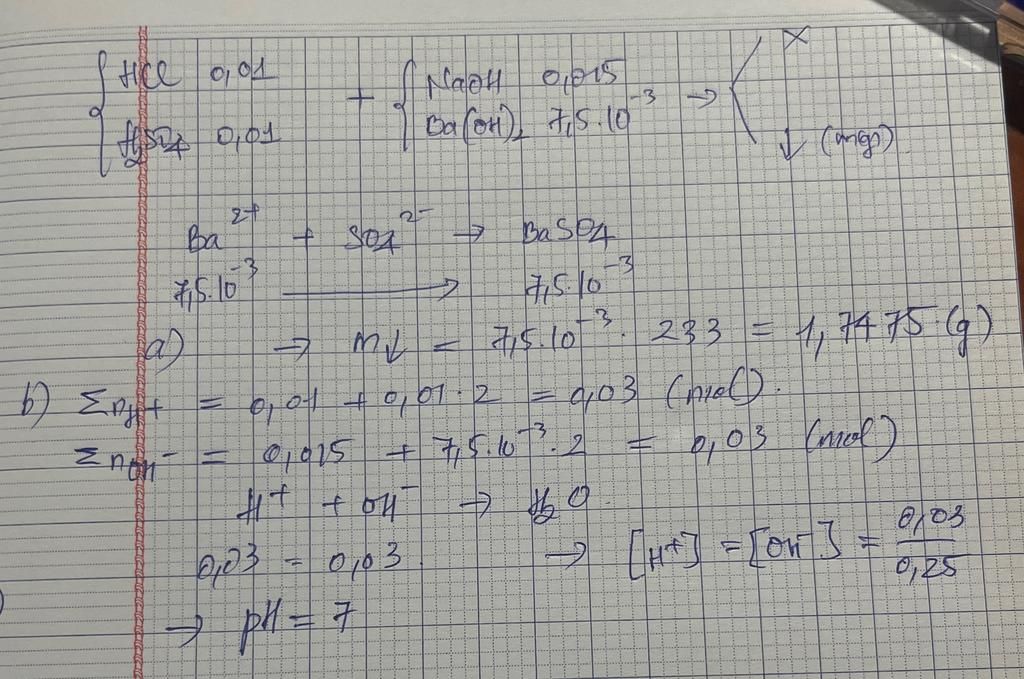 { HCl 0,01 + { NaOH 0,015 → < X
H₂SO₄ 0,01 Ba(OH)₂ 7,5.10⁻³ ↓ (mg)
Ba²⁺ + SO₄²⁻ → BaSO₄
7,5.10⁻³ → 7,5.10⁻³
a) → m↓ = 7,5.10⁻³. 233 = 1,7475 (g)
b) Σn_H⁺ = 0,01 + 0,01.2 = 0,03 (mol).
Σn_OH⁻ = 0,015 + 7,5.10⁻³.2 = 0,03 (mol)
H⁺ + OH⁻ → H₂O.
0,03 = 0,03. → [H⁺] = [OH⁻] = 0,03/0,25
→ pH = 7